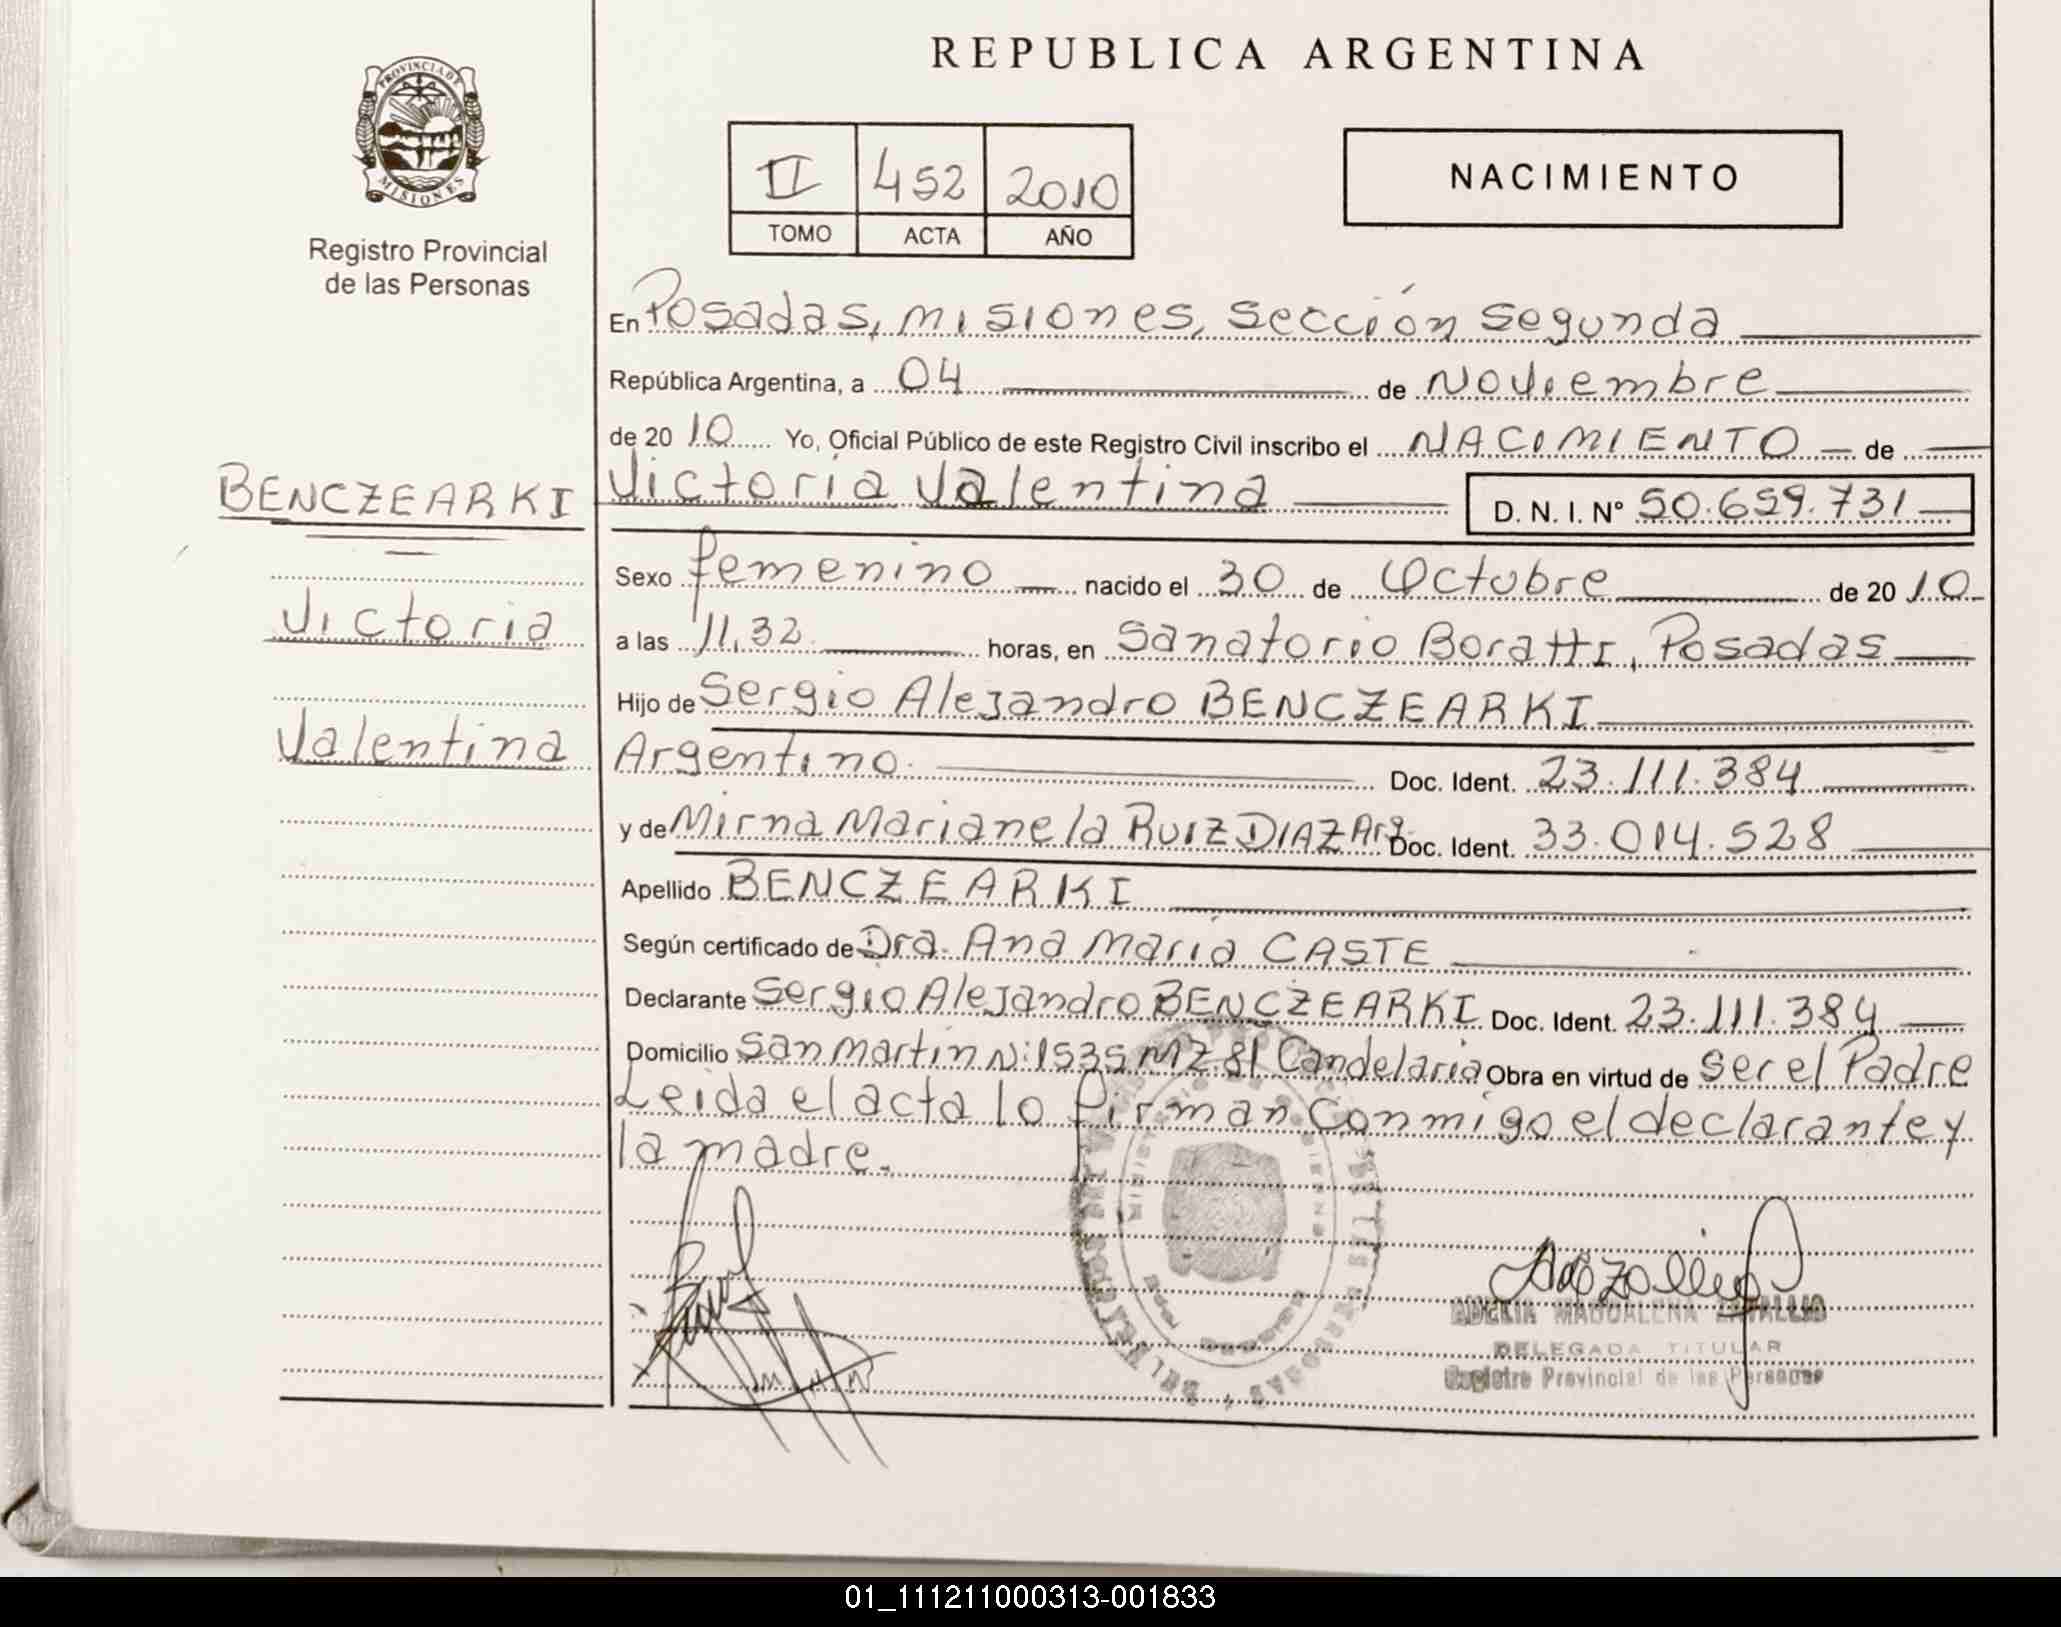 REPUBLICA ARGENTINA
PROVINCIA DE
MISIONES
Registro Provincial
de las Personas
II 452 2010
TOMO ACTA AÑO
NACIMIENTO
En Posadas, Misiones, Sección Segunda
República Argentina, a 04 de Noviembre
de 2010 Yo, Oficial Público de este Registro Civil inscribo el NACIMIENTO de
BENCZEARKI
Victoria
Valentina
Victoria Valentina D. N. I. N° 50.659.731
Sexo femenino nacido el 30 de Octubre de 2010
a las 11,32 horas, en Sanatorio Boratti, Posadas
Hijo de Sergio Alejandro BENCZEARKI
Argentino. Doc. Ident. 23.111.384
y de Mirna Marianela RUIZ DIAZ Arg. Doc. Ident. 33.014.528
Apellido BENCZEARKI
Según certificado de Dra. Ana Maria CASTE
Declarante Sergio Alejandro BENCZEARKI Doc. Ident. 23.111.384
Domicilio San Martin N: 1535 MZ. 81 Candelaria Obra en virtud de ser el Padre
Leida el acta lo firman conmigo el declarante y
la madre.
DELEGADA TITULAR
Registro Provincial de las Personas
01_111211000313-001833